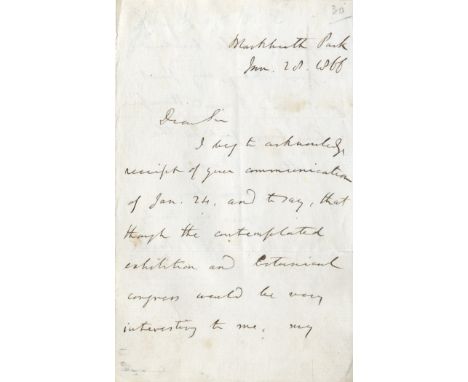 30
Blackheath Park
Jan. 28. 1866
Dear Sir
I beg to acknowledge
receipt of your communication
of Jan. 24. and to say, that
though the contemplated
exhibition and botanical
congress would be very
interesting to me, my